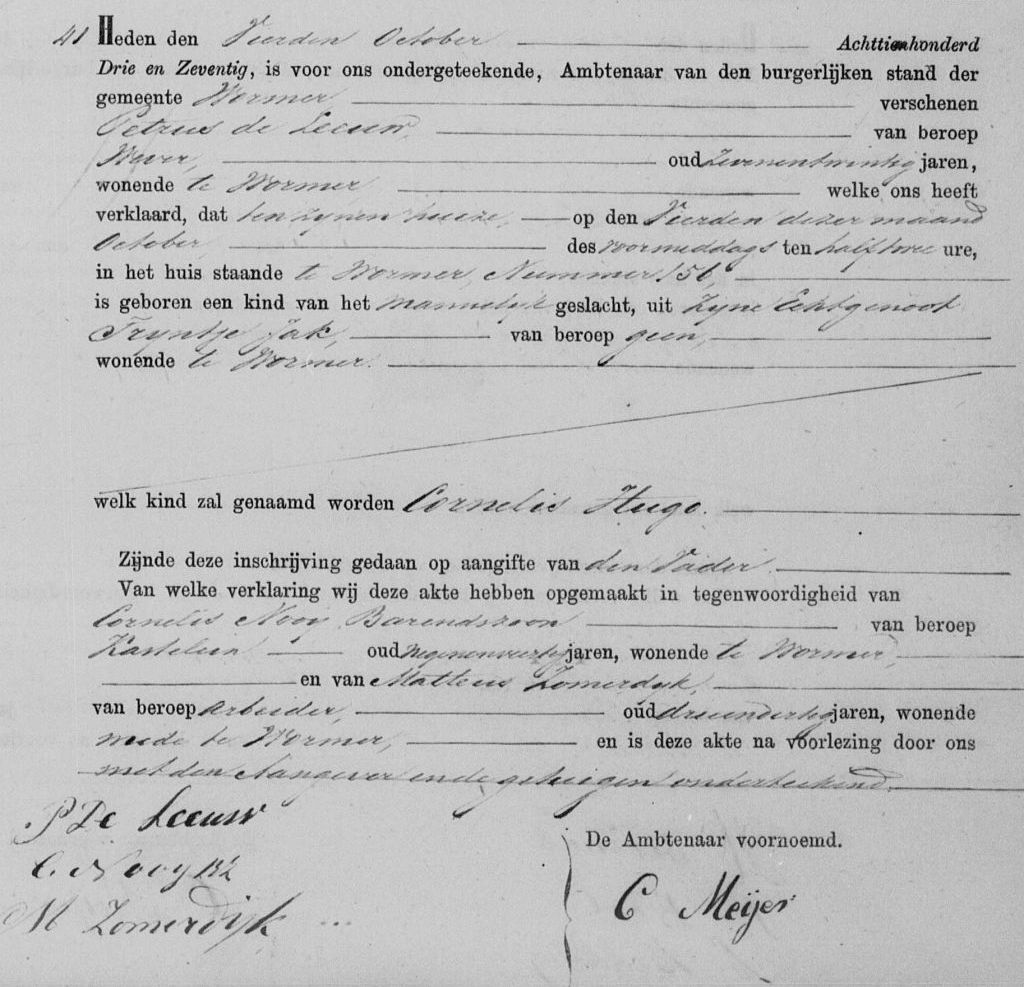 41 Heden den Vierden October Achttienhonderd
Drie en Zeventig, is voor ons ondergeteekende, Ambtenaar van den burgerlijken stand der
gemeente Wormer verschenen
Petrus de Leeuw van beroep
Wever, oud zevenentwintig jaren,
wonende te Wormer welke ons heeft
verklaard, dat ten zynen huize, op den Vierden dezer maand
October, des voormiddags ten half twee ure,
in het huis staande te Wormer, Nummer 156,
is geboren een kind van het mannelyk geslacht, uit zyne Echtgenoot
Tryntje Jak, van beroep geen,
wonende te Wormer.
welk kind zal genaamd worden Cornelis Hugo.
Zijnde deze inschrijving gedaan op aangifte van den Vader.
Van welke verklaring wij deze akte hebben opgemaakt in tegenwoordigheid van
Cornelis Nooy Barendszoon van beroep
Kastelein oud negenenveertig jaren, wonende te Wormer,
en van Matteus Zomerdyk,
van beroep arbeider, oud drieendertig jaren, wonende
mede te Wormer, en is deze akte na voorlezing door ons
met den Aangever en de getuigen onderteekend.
P De Leeuw
De Ambtenaar voornoemd.
C. Nooy Bz
C Meijer
M Zomerdijk